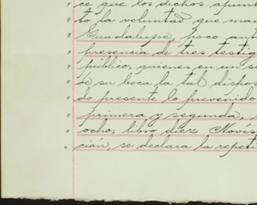 ce que los dichos apunt
to la voluntad que man
Guadalupe, poco ant
presencia de tres testig
público, quienes en un s
de su boca la tal dispos
do presente lo prevenido
primera y segunda,
ocho, libro diez Novís
ción, se declara la repeti